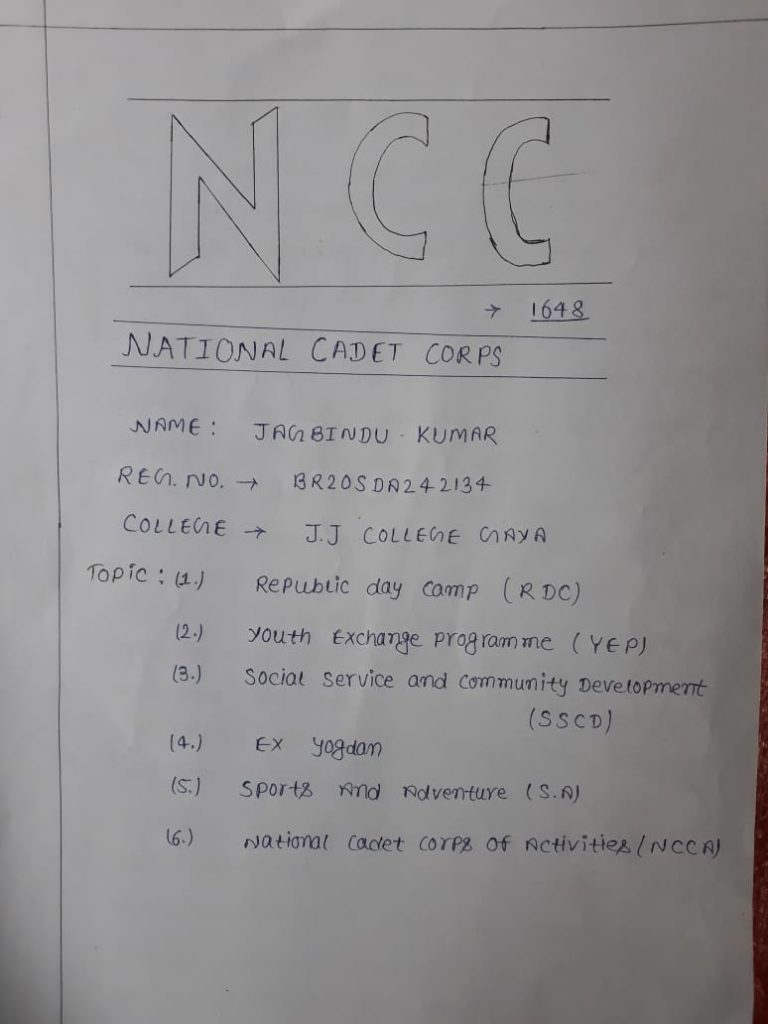 NCC
→ 1648
NATIONAL CADET CORPS
NAME : JAGBINDU . KUMAR
REG. NO. → BR20SDA242134
COLLEGE → J.J COLLEGE GAYA
Topic : (1.) Republic day camp (RDC)
(2.) Youth Exchange programme (YEP)
(3.) Social service and community Development
(SSCD)
(4.) Ex yogdan
(5.) Sports And Adventure (S.A)
(6.) National cadet corps of Activities (NCCA)